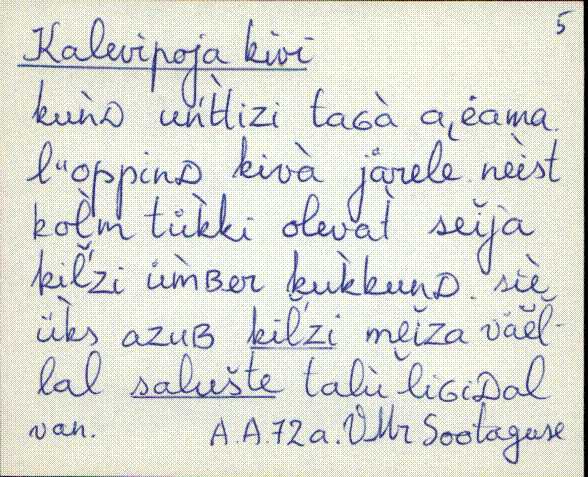 5
Kalevipoja kivi
kuǹᴅ uǹtizi taɢà ajàma.
lᵘoppinᴅ kivà järele. nèist
kol̀m tük̀ki olevat̀ seĭja
kil̆'zi üm̀ʙer kuk̀kunᴅ. siè
ük̀s azuʙ kil̆'zi mĕĭza väĕl-
lal saluště talù ligiᴅal
van. A.A. 72 a. VMr Sootaguse